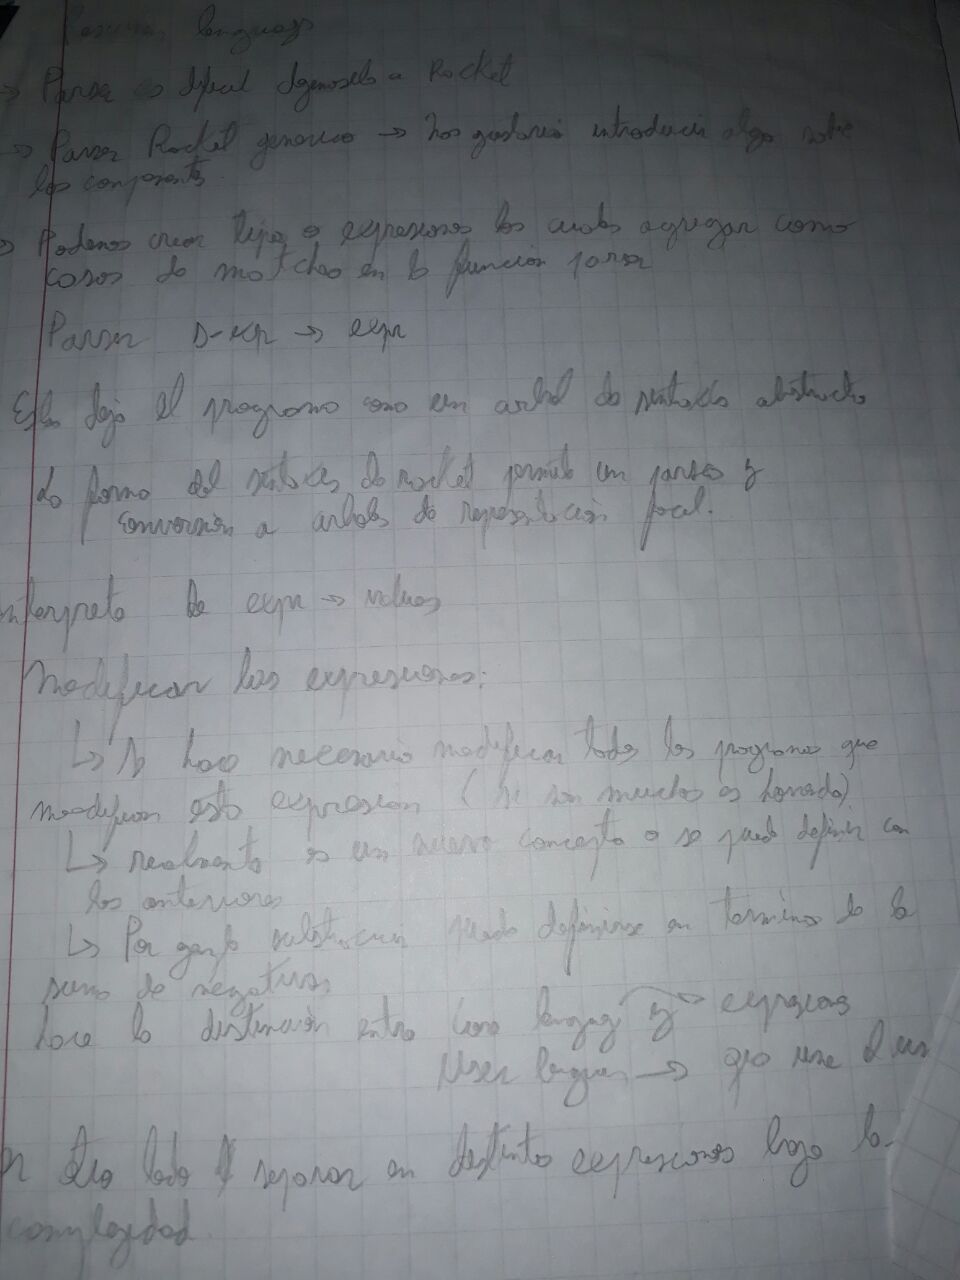 → Parsear es dificil dejemoselo a Rocket
→ Parser Rocket generico → nos gustaria introducir algo sobre
los componentes.
→ Podemos crear tipo o expresiones los cuales agregar como
casos de matcheo en la funcion parser
Parser s-exp → expr
Esto deja el programa como un arbol de sintaxis abstracto
La forma del sintaxis de rocket permite un parseo y
conversión a arboles de representacion facil.
Interprete de expr → valores
Modificar las expresiones:
↳ Se hace necesario modificar todos los programas que
modifican esta expresion (Si son muchos es honrado)
↳ realmente es un nuevo concepto o se puede definir con
los anteriores
↳ Por ejemplo substraccion puede definirse en termino de la
suma de negativos
hace la distincion entre Core language y expresiones
User language → que use el usr
otro lado separar en distintas expresiones baja la
complejidad.